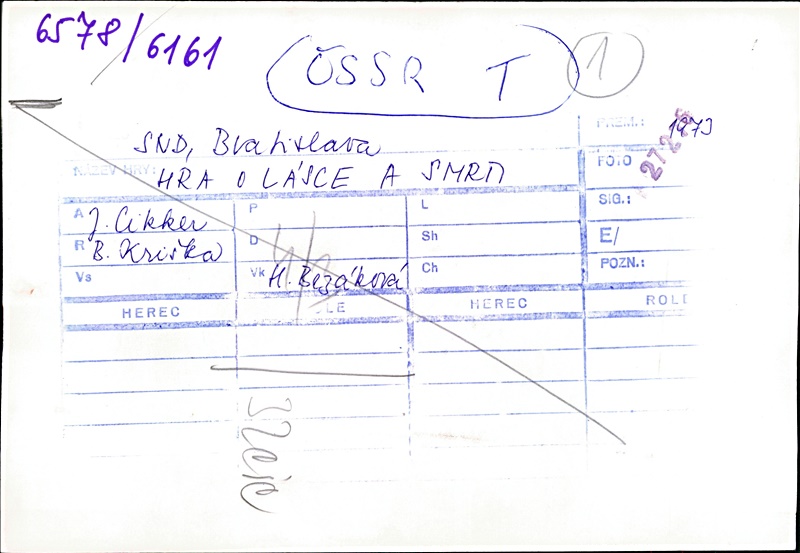 6578/6161
ČSSR T 1
SND, Bratislava
PREM.: 1973
NÁZEV HRY: HRA O LÁSCE A SMRTI
FOTO 27.2.
A J. Cikker P L SIG.:
R B. Kriška D Sh E/
Vs Vk H. Bezáková Ch POZN.:
HEREC ROLE HEREC ROLE